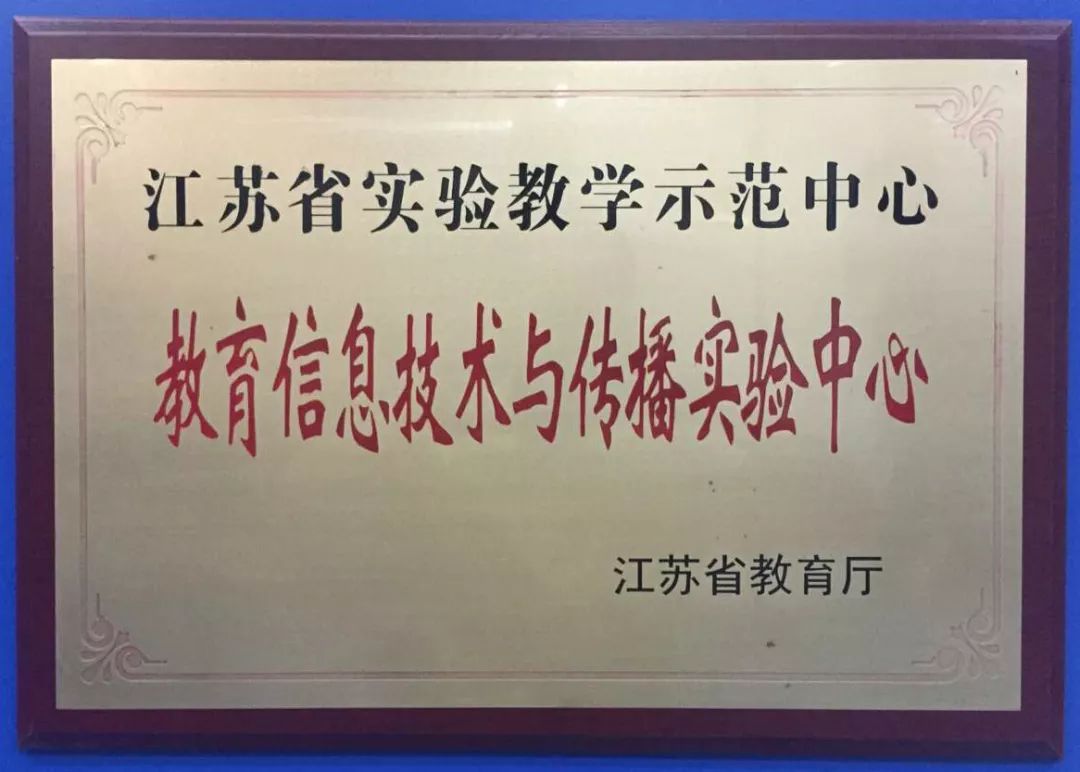 江苏省实验教学示范中心
教育信息技术与传播实验中心
江苏省教育厅